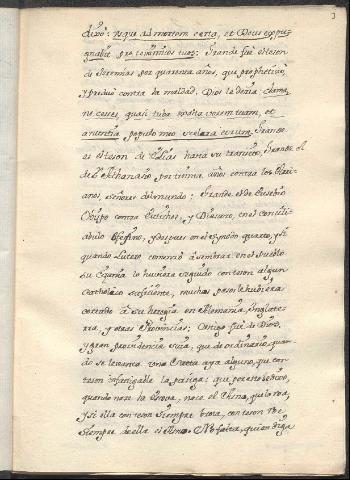 3
dizè: usque ad mortem certa, et Deus expug-
nabit pro te inimicos tuos: Grande fuè el teson
de Jeremias por quarenta años, que prophetizò,
y predicò contra la maldad. Dios le decia: clama,
ne cesses, quasi tuba exalta vocem tuam, et
annuntia populo meo scelera eorum. Grande
es el teson de Elias hasta su transito: Grande el
de Sⁿ Athanasio por treinta años contra los Arri-
anos, señores del mundo: Grande el de Eusebio
Obispo contra Eutiches, y Dioscoro, en el concili-
abulo Efesino, y despues en el Synodo quarto, y si
quando Lutero comenzò à sembrar en el Pueblo
su Cizania le huviera seguido con teson algun
Catholico suficiente, muchos pasos le huviera
cortado à su heregia en Alemania, Inglater-
ra, y otras Provincias; Castigo fuè de Dios,
y gran providencia suya, que de ordinario, quan-
do se levanta una Secta aya alguno, que con
teson infatigable la persiga: que por esto se dixo,
quando nace la Oruga, nace el que la roa,
y si ella con teson siempre brota, con teson roe
siempre de ella el Amo. No falta, quien diga